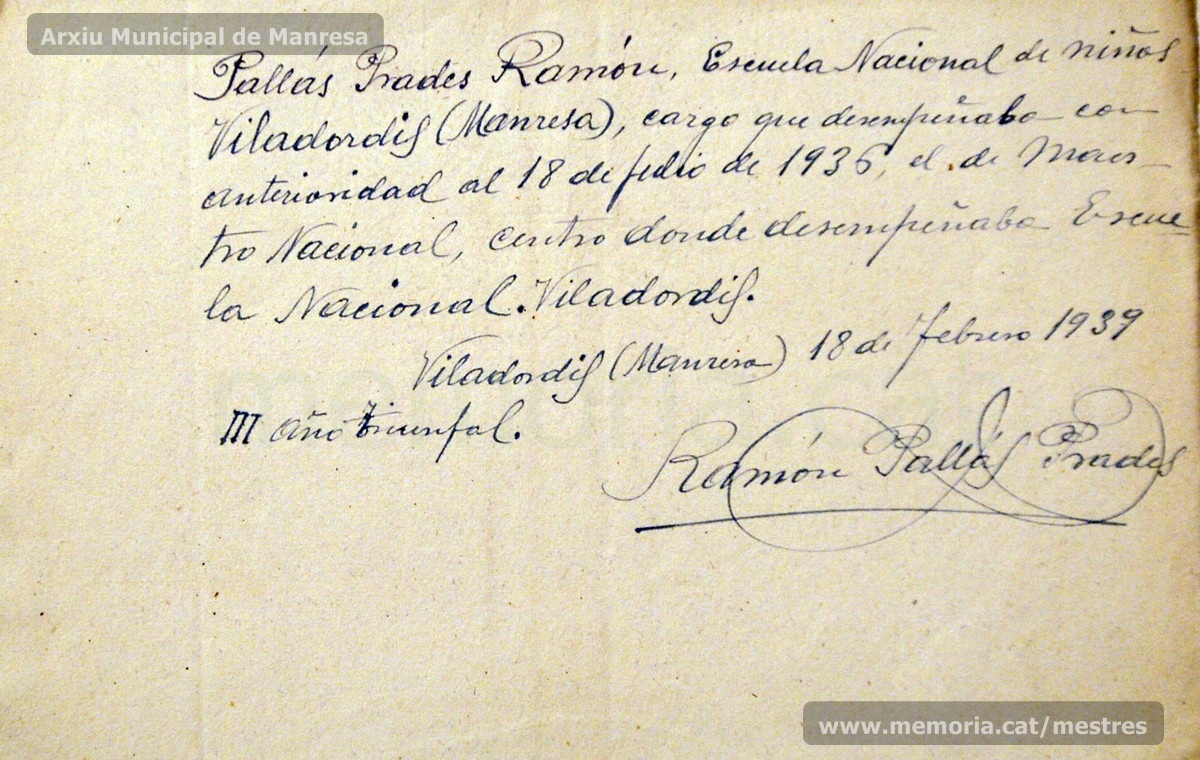 Arxiu Municipal de Manresa
Pallás Prades Ramón, Escuela Nacional de niños
Viladordis (Manresa), cargo que desempeñaba con
anterioridad al 18 de julio de 1936, el de Maes-
tro Nacional, centro donde desempeñaba Escue-
la Nacional. Viladordis.
Viladordis (Manresa) 18 de Febrero 1939
III año triunfal.
Ramón Pallás Prades
www.memoria.cat/mestres